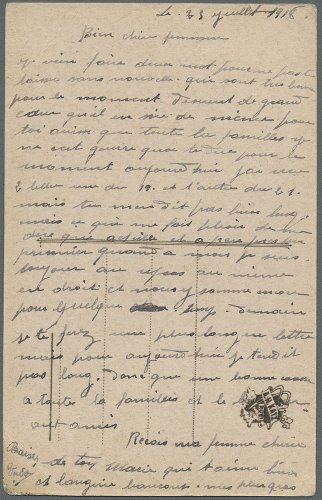 Le 23 juillet 1916
Bien chère femme
je vien faire deux mot pour ne pas te
laisser sans nouvele qui sont tres bonne
pour le moment desirent de grand
cœur qu'il en soie de meme pour
toi ainsi que toute la familles je
ne cait guerre quoi te dire pour le
moment aujourdhui j'ai recu
2 lettre une du 19. et l'autre du 21.
mais tu men dit pas bien long
mais ce qui me fait plesir de me
dire que
premier quand a nous je suis
toujour au repos au meme
en droit et nous y somme encore
pour quelque temp. demain
je te ferez une plus longue lettre
mais pour aujourdhui je ten dit
pas long. donc que une bonne
a toute la familles et le
ant amis
Recois ma femme cherie
Baiser de ton mari qui t'aime bien
et longuie beaucoup mes plus gros